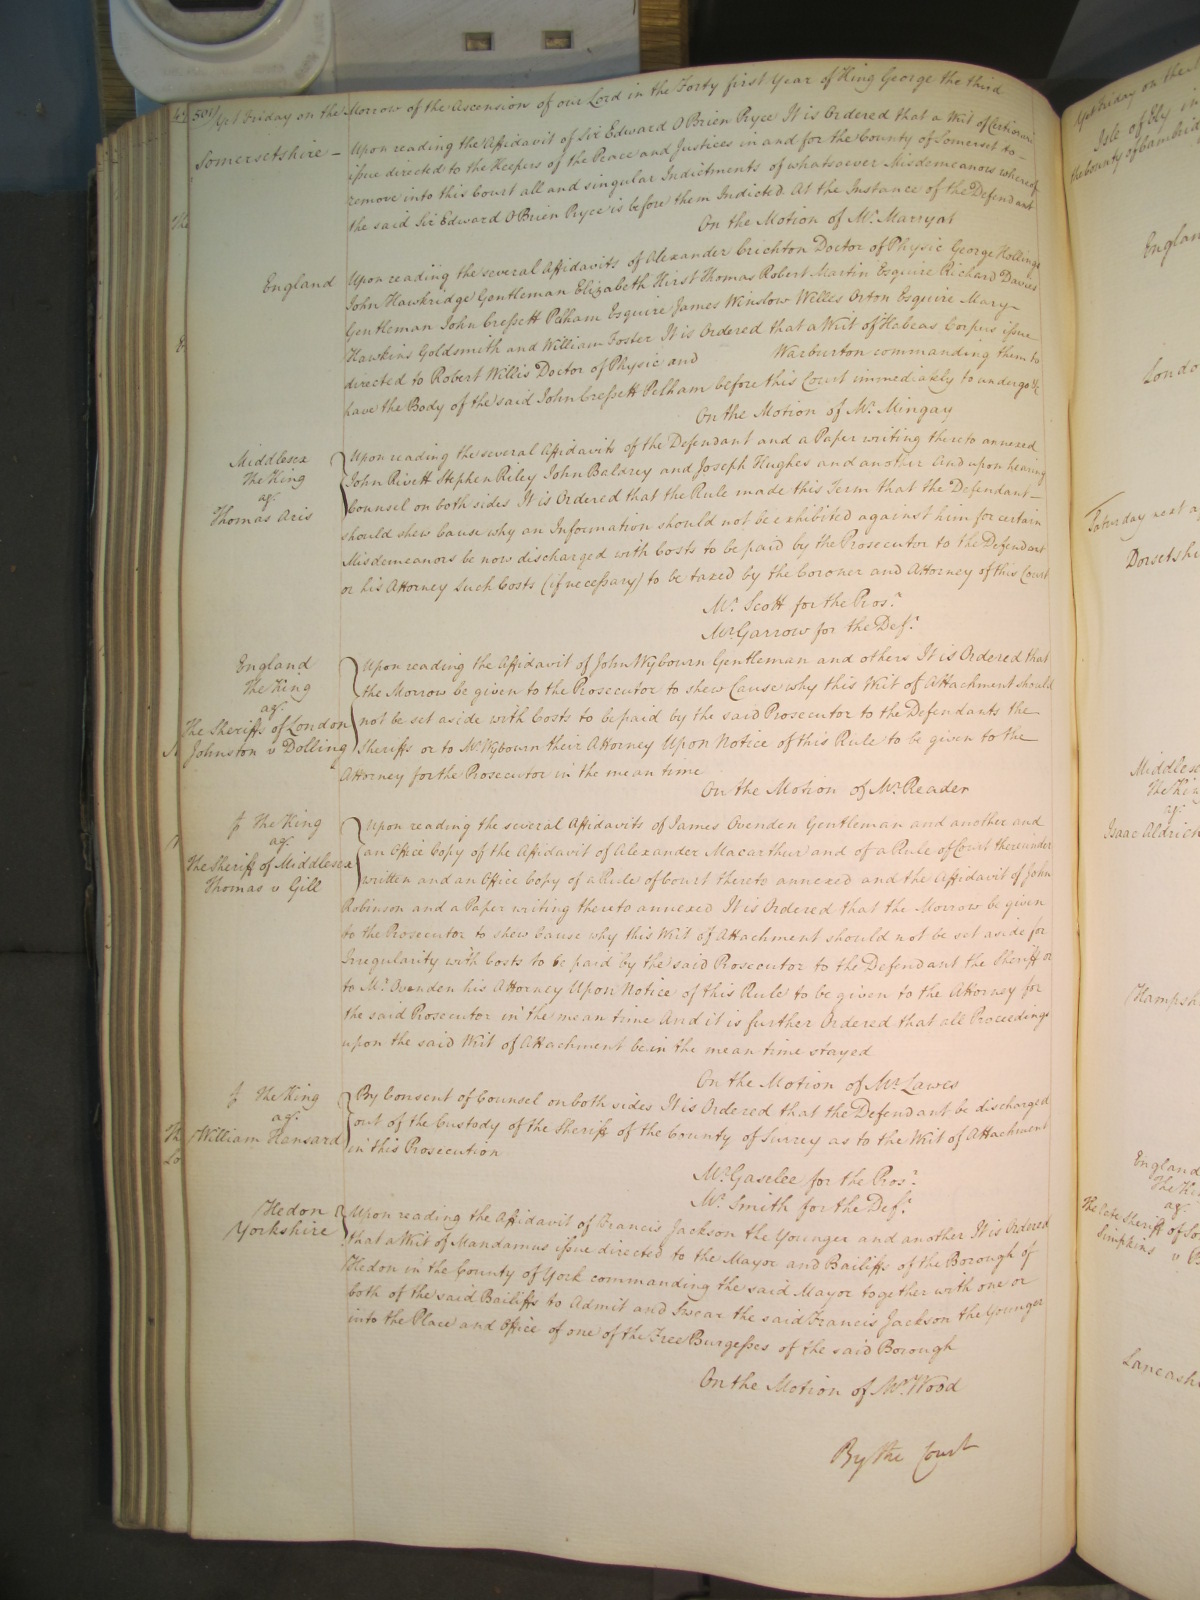 501 Yet Friday on the Morrow of the Ascension of our Lord in the Forty first Year of King George the third
Somersetshire –
Upon reading the Affidavit of Sir Edward O Brien Pryce It is Ordered that a Writ of Certiorari
issue directed to the Keepers of the Peace and Justices in and for the County of Somerset to –
remove into this Court all and singular Indictments of whatsoever Misdemeanors whereof
the said Sir Edward O Brien Pryce is before them Indicted At the Instance of the Defendant
On the Motion of Mr. Marryat
England
Upon reading the several Affidavits of Alexander Crichton Doctor of Physic George Hollings
John Hawkridge Gentleman Elizabeth Hirst Thomas Robert Martin Esquire Richard Davies
Gentleman John Cressett Pelham Esquire James Winslow Willes Orton Esquire Mary –
Hawkins Goldsmith and William Foster It is Ordered that a Writ of Habeas Corpus issue
directed to Robert Willis Doctor of Physic and Warburton commanding them to
have the Body of the said John Cressett Pelham before this Court immediately to undergo &c
On the Motion of Mr. Mingay
Middlesex
The King
agt.
Thomas Aris
Upon reading the several Affidavits of the Defendant and a Paper writing thereto annexed
John Rivett Stephen Riley John Baldrey and Joseph Hughes and another And upon hearing
Counsel on both sides It is Ordered that the Rule made this Term that the Defendant –
should shew Cause why an Information should not be exhibited against him for certain
Misdemeanors be now discharged with Costs to be paid by the Prosecutor to the Defendant
or his Attorney such Costs (if necessary) to be taxed by the Coroner and Attorney of this Court
Mr. Scott for the Prosr.
Mr. Garrow for the Deft.
England
The King
agt.
The Sheriffs of London
Johnston v Dolling
Upon reading the Affidavit of John Wybourn Gentleman and others It is Ordered that
the Morrow be given to the Prosecutor to shew Cause why this Writ of Attachment should
not be set aside with Costs to be paid by the said Prosecutor to the Defendants the
Sheriffs or to Mr. Wybourn their Attorney Upon Notice of this Rule to be given to the
Attorney for the Prosecutor in the mean time
On the Motion of Mr. Reader
The King
agt.
The Sheriff of Middlesex
Thomas v Gill
Upon reading the several Affidavits of James Ovenden Gentleman and another and
an Office Copy of the Affidavit of Alexander Macarthur and of a Rule of Court thereunder
written and an Office Copy of a Rule of Court thereto annexed and the Affidavit of John
Robinson and a Paper writing thereto annexed It is Ordered that the Morrow be given
to the Prosecutor to shew Cause why this Writ of Attachment should not be set aside for
Irregularity with Costs to be paid by the said Prosecutor to the Defendant the Sheriff or
to Mr. Ovenden his Attorney Upon Notice of this Rule to be given to the Attorney for
the said Prosecutor in the mean time And it is further Ordered that all Proceedings
upon the said Writ of Attachment be in the mean time stayed
On the Motion of Mr. Lawes
The King
agt.
William Hansard
By Consent of Counsel on both sides It is Ordered that the Defendant be discharged
out of the Custody of the Sheriff of the County of Surrey as to the Writ of Attachment
in this Prosecution
Mr. Gaselee for the Prosr.
Mr. Smith for the Deft.
Hedon
Yorkshire
Upon reading the Affidavit of Francis Jackson the Younger and another It is Ordered
that a Writ of Mandamus issue directed to the Mayor and Bailiffs of the Borough of
Hedon in the County of York commanding the said Mayor together with one or
both of the said Bailiffs to Admit and Swear the said Francis Jackson the Younger
into the Place and Office of one of the Free Burgesses of the said Borough
On the Motion of Mr. Wood
By the Court
Yet Friday on the
Isle of Ely in
the County of Cambrid
Englan
Londo
Saturday next a
Dorsetshi
Middlese
The Kin
agt.
Isaac Aldrich
Hampsh
England
The Ki
agt.
The late Sheriff of Lo
Simpkins v
Lancash